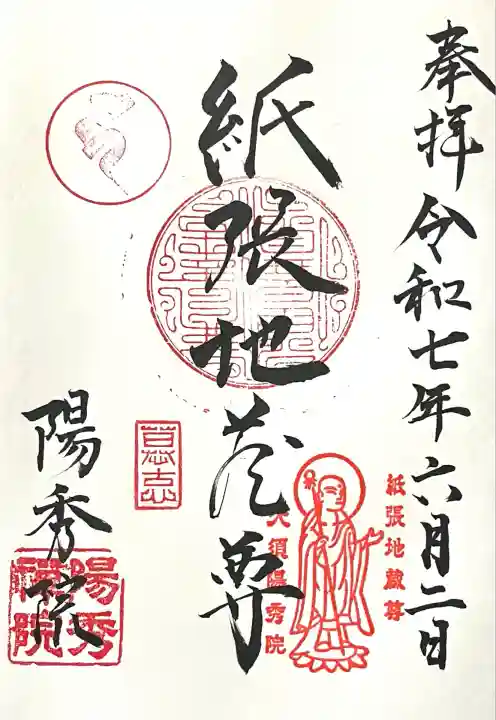 奉拝 令和七年六月二日
紙張地蔵尊
紙張地蔵尊
大須陽秀院
陽秀院
陽秀禅院